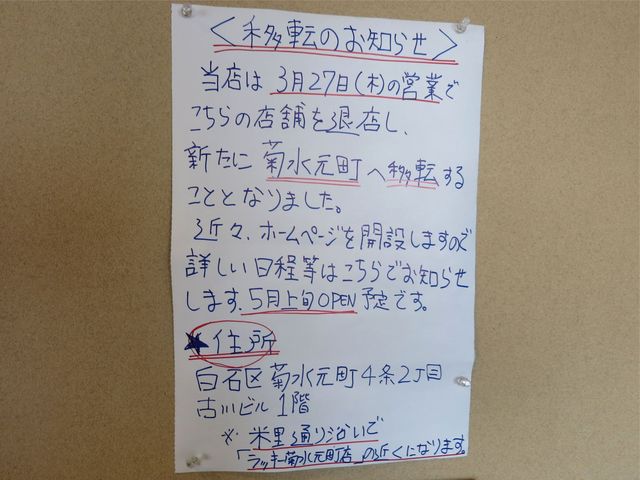 ＜移転のお知らせ＞
当店は3月27日(木)の営業で
こちらの店舗を退店し、
新たに菊水元町へ移転する
こととなりました。
近々、ホームページを開設しますので
詳しい日程等はこちらでお知らせ
します。5月上旬OPEN予定です。
★住所
白石区菊水元町4条2丁目
古川ビル1階
※米里通り沿いで
「ラッキー菊水元町店」の近くになります。